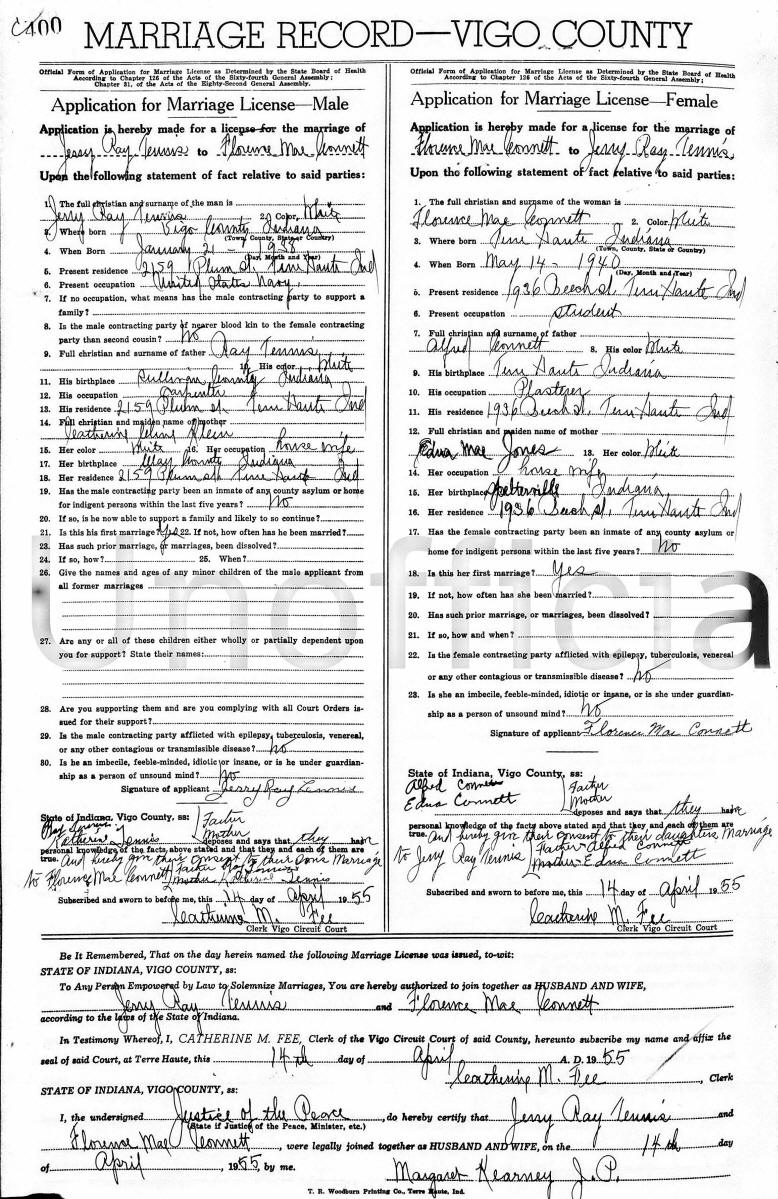 C400
MARRIAGE RECORD—VIGO COUNTY
Official Form of Application for Marriage License as Determined by the State Board of Health
According to Chapter 126 of the Acts of the Sixty-fourth General Assembly;
Chapter 81, of the Acts of the Eighty-Second General Assembly.
Application for Marriage License—Male
Application is hereby made for a license for the marriage of
Jerry Ray Tennis to Florence Mae Connett
Upon the following statement of fact relative to said parties:
1. The full christian and surname of the man is
Jerry Ray Tennis 2. Color White
3. Where born Vigo County Indiana
(Town, County, State or Country)
4. When Born January 21 - 1938
(Day, Month and Year)
5. Present residence 2159 Plum st. Terre Haute Ind
6. Present occupation United States Navy
7. If no occupation, what means has the male contracting party to support a
family?
8. Is the male contracting party of nearer blood kin to the female contracting
party than second cousin? No
9. Full christian and surname of father Ray Tennis
10. His color White
11. His birthplace Sullivan County Indiana
12. His occupation Carpenter
13. His residence 2159 Plum st. Terre Haute Ind
14. Full christian and maiden name of mother
Catherine Klein
15. Her color White 16. Her occupation house wife
17. Her birthplace Clay County Indiana
18. Her residence 2159 Plum st Terre Haute Ind
19. Has the male contracting party been an inmate of any county asylum or home
for indigent persons within the last five years? No
20. If so, is he now able to support a family and likely to so continue?
21. Is this his first marriage? Yes 22. If not, how often has he been married?
23. Has such prior marriage, or marriages, been dissolved?
24. If so, how? 25. When?
26. Give the names and ages of any minor children of the male applicant from
all former marriages
27. Are any or all of these children either wholly or partially dependent upon
you for support? State their names:
28. Are you supporting them and are you complying with all Court Orders is-
sued for their support?
29. Is the male contracting party afflicted with epilepsy, tuberculosis, venereal,
or any other contagious or transmissible disease? No
30. Is he an imbecile, feeble-minded, idiotic or insane, or is he under guardian-
ship as a person of unsound mind? No
Signature of applicant Jerry Ray Tennis
State of Indiana, Vigo County, ss:
Ray Tennis Father
Katherine Tennis Mother
deposes and says that they have
personal knowledge of the facts above stated and that they and each of them are
true. And hereby give their consent to their Son's Marriage
to Florence Mae Connett Father Ray Tennis
Mother Katherine Tennis
Subscribed and sworn to before me, this 14 day of April 1955
Catherine M. Fee
Clerk Vigo Circuit Court
Official Form of Application for Marriage License as Determined by the State Board of Health
According to Chapter 126 of the Acts of the Sixty-fourth General Assembly;
Application for Marriage License—Female
Application is hereby made for a license for the marriage of
Florence Mae Connett to Jerry Ray Tennis
Upon the following statement of fact relative to said parties:
1. The full christian and surname of the woman is
Florence Mae Connett 2. Color White
3. Where born Terre Haute Indiana
(Town, County, State or Country)
4. When Born May 14 - 1940
(Day, Month and Year)
5. Present residence 1936 Beech st. Terre Haute Ind
6. Present occupation student
7. Full christian and surname of father
Alfred Connett 8. His color White
9. His birthplace Terre Haute Indiana
10. His occupation Plasterer
11. His residence 1936 Beech st. Terre Haute Ind
12. Full christian and maiden name of mother
Edna Mae Jones 13. Her color White
14. Her occupation house wife
15. Her birthplace Indiana
16. Her residence 1936 Beech st. Terre Haute Ind
17. Has the female contracting party been an inmate of any county asylum or
home for indigent persons within the last five years? No
18. Is this her first marriage? Yes
19. If not, how often has she been married?
20. Has such prior marriage, or marriages, been dissolved?
21. If so, how and when?
22. Is the female contracting party afflicted with epilepsy, tuberculosis, venereal
or any other contagious or transmissible disease? No
23. Is she an imbecile, feeble-minded, idiotic or insane, or is she under guardian-
ship as a person of unsound mind? No
Signature of applicant Florence Mae Connett
State of Indiana, Vigo County, ss:
Alfred Connett Father
Edna Connett Mother
deposes and says that they have
personal knowledge of the facts above stated and that they and each of them are
true. And hereby give their consent to their daughters Marriage
to Jerry Ray Tennis Father Alfred Connett
Mother Edna Connett
Subscribed and sworn to before me, this 14 day of April 1955
Catherine M. Fee
Clerk Vigo Circuit Court
Unofficia
Be It Remembered, That on the day herein named the following Marriage License was issued, to-wit:
STATE OF INDIANA, VIGO COUNTY, ss:
To Any Person Empowered by Law to Solemnize Marriages, You are hereby authorized to join together as HUSBAND AND WIFE,
Jerry Ray Tennis and Florence Mae Connett
according to the laws of the State of Indiana.
In Testimony Whereof, I, CATHERINE M. FEE, Clerk of the Vigo Circuit Court of said County, hereunto subscribe my name and affix the
seal of said Court, at Terre Haute, this 14th day of April A. D. 1955
Catherine M. Fee, Clerk
STATE OF INDIANA, VIGO COUNTY, ss:
I, the undersigned Justice of the Peace, do hereby certify that Jerry Ray Tennis and
(State if Justice of the Peace, Minister, etc.)
Florence Mae Connett, were legally joined together as HUSBAND AND WIFE, on the 14th day
of April, 1955, by me. Margaret Kearney J.P.
T. R. Woodburn Printing Co., Terre Haute, Ind.